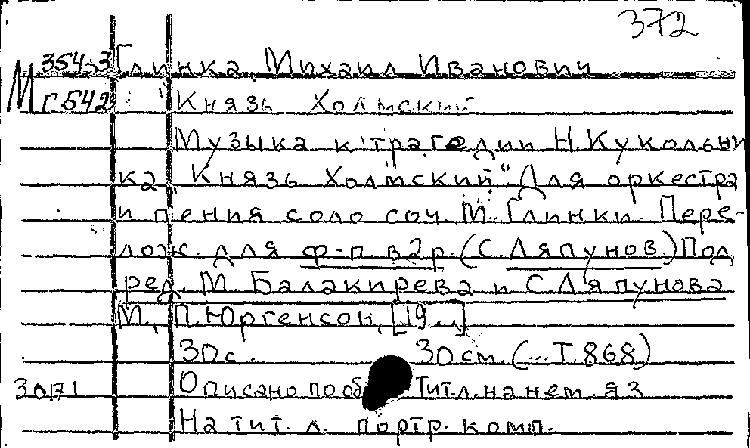 372
354-3 Глинка, Михаил Иванович
М Г542 "Князь Холмский"
Музыка к трагедии Н. Кукольни
ка "Князь Холмский". Для оркестра
и пения соло соч. М. Глинки. Пере-
лож. для ф-п в 2 р. (С. Ляпунов.) Под
ред. М. Балакирева и С. Ляпунова
М., П. Юргенсон, [19..]
30 с. 30 см. (...Т. 868)
Описано по об Тит. л. на нем. яз
На тит. л. портр. комп.